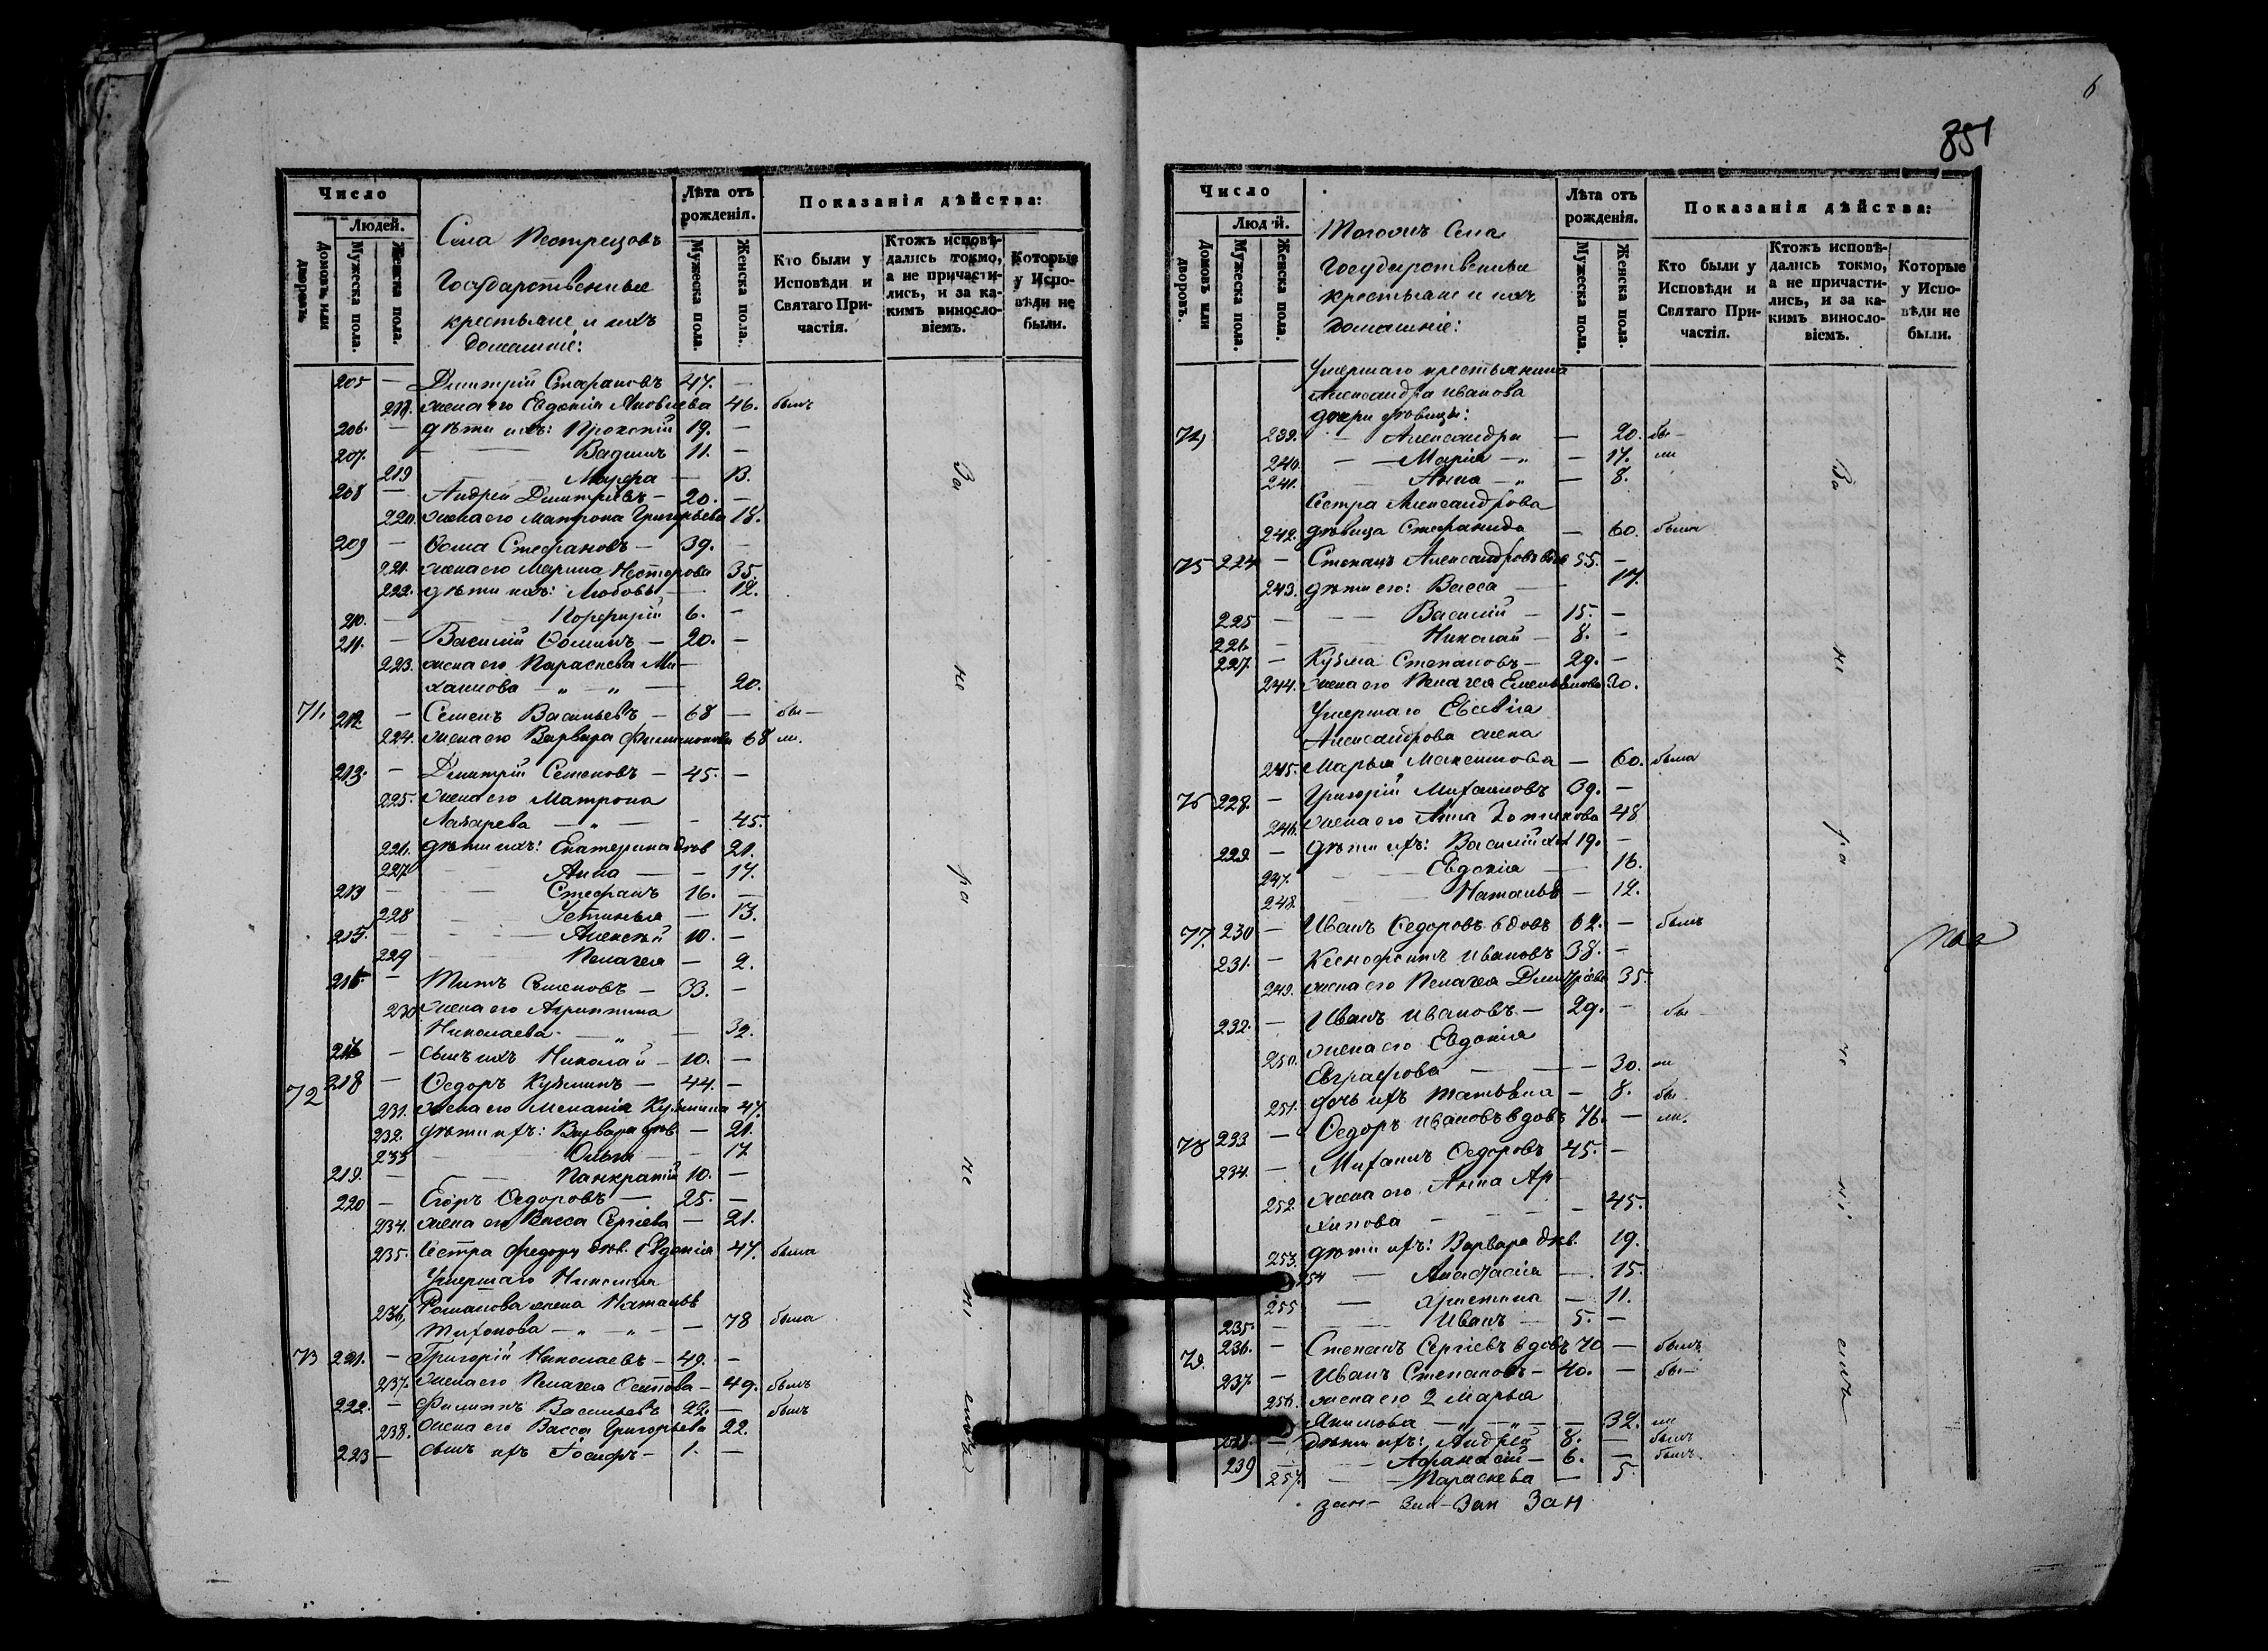 6
851
Число
Людей.
Домовъ или дворовъ.
Мужеска пола.
Женска пола.
Села Пестрецовъ
Государственные
крестьяне и ихъ
домашніе:
Лѣта отъ рожденія.
Мужеска пола.
Женска пола.
Показанія дѣйства:
Кто были у Исповѣди и Святаго Причастія.
Ктожъ исповѣдались токмо, а не причастились, и за какимъ винословіемъ.
Которые у Исповѣди не были.
205 — Дмитрій Стефановъ 47. —
218. жена его Евдокія Яковлева 46. былъ
206. — дѣти ихъ: Прокопій 19. —
207. — Вадимъ 11. —
219 Марфа — 13.
208 — Андрей Дмитріевъ — 20. —
220. жена его Матрона Григорьева 18.
209 — Ѳома Стефановъ — 39. —
221. жена его Марина Несторова 35.
222. дѣти ихъ: Любовь — 12.
210. — Порфирій 6. —
211. — Василій Ѳоминъ — 20. —
223. жена его Параскева Ми-
хаилова — „ — „ — 20.
71. 212. — Семенъ Васильевъ — 68 — бы —
224. жена его Варвара Филимонова 68 ли.
213. — Дмитрій Семеновъ — 45. —
225. жена его Матрона
Лазарева — „ — — 45.
226. дѣти ихъ: Екатерина дѣв 21.
227. Анна — — 17.
213 — Стефанъ 16. —
228 Устинья — 13.
215. — Алексѣй 10. —
229 Пелагея — 2.
216. — Титъ Семеновъ — 33. —
230 жена его Агриппина
Николаева — „ — 32.
216 — сынъ ихъ Николай — 10. —
72 218 — Ѳедоръ Кузминъ — 44. —
231. жена его Меланія Кузмина 47.
232. дѣти ихъ: Варвара дѣв. — 21.
233 Ольга — — 17
219. — Панкратій 10. —
220 — Егоръ Ѳедоровъ — 25. —
234. жена его Васса Сергіева — 21.
235. Сестра Федору дѣв. Евдокія 47. была
Умершаго Николая
236. Романова жена Наталья
Тихонова — „ — „ — — 78 была
73 221. — Григорій Николаевъ — 49. —
237. жена его Пелагея Осипова — 49. былъ
222. — Филиппъ Васильевъ 22. — былъ
238. жена его Васса Григорьева 22.
223 — сынъ ихъ Іосифъ — 1. —
За не ра не ні емъ
Число
Людей.
Домовъ или дворовъ.
Мужеска пола.
Женска пола.
Тогожъ Села
Государственные
крестьяне и ихъ
домашніе:
Лѣта отъ рожденія.
Мужеска пола.
Женска пола.
Показанія дѣйства:
Кто были у Исповѣди и Святаго Причастія.
Ктожъ исповѣдались токмо, а не причастились, и за какимъ винословіемъ.
Которые у Исповѣди не были.
Умершаго крестьянина
Александра Иванова
дочери дѣвицы:
74 239. — Александра — 20. бы —
240. — — Марія — „ — 17. ли
241. Анна — „ — 8.
Сестра Александрова
242. дѣвица Стефанида — 60. была
75 224 — Степанъ Александровъ вдов 55. —
243. дѣти его: Васса — 17.
225 — — Василій — 15. —
226. — Николай — 8. —
227. — Кузма Степановъ — 29. —
244. жена его Пелагея Емельянова 30.
Умершаго Евсевія
Александрова жена
245. Марья Максимова — 60. была
76 228. — Григорій Михаиловъ 39. —
246. жена его Анна 48
229. — дѣти ихъ: Василій 19. —
247. Евдокія — 16.
248. Наталья — 12.
77. 230 — Иванъ Ѳедоровъ вдовъ 62. — былъ
231. — Ксенофонтъ Ивановъ 38. —
249. жена его Пелагея Дмитріева 35.
232. — Иванъ Ивановъ — 29. — бы —
250. жена его Евдокія
Евграфова — — — 30. ли
251. дочь ихъ Татьяна — 8. бы
78 233 — Ѳедоръ Ивановъ вдовъ 76. — ли.
234. — Михаилъ Ѳедоровъ 45. —
252. жена его Анна Ар-
хипова — — — 45.
253. дѣти ихъ: Варвара дѣв. 19.
254 — Анастасія — 15.
255 — Христина — 11.
235. — Иванъ — 5. —
79. 236. — Степанъ Сергіевъ вдовъ 70 — былъ
237. — Иванъ Степановъ — 40. — бы —
256. жена его 2 Марья
Якимова — „ — „ — — 32. ли
238. — дѣти ихъ: Андрей 8. — былъ
239 — Афанасій — 6. — былъ.
257. — Параскева — 5.
За не ра не ні емъ
зан — зан — Зан Зан